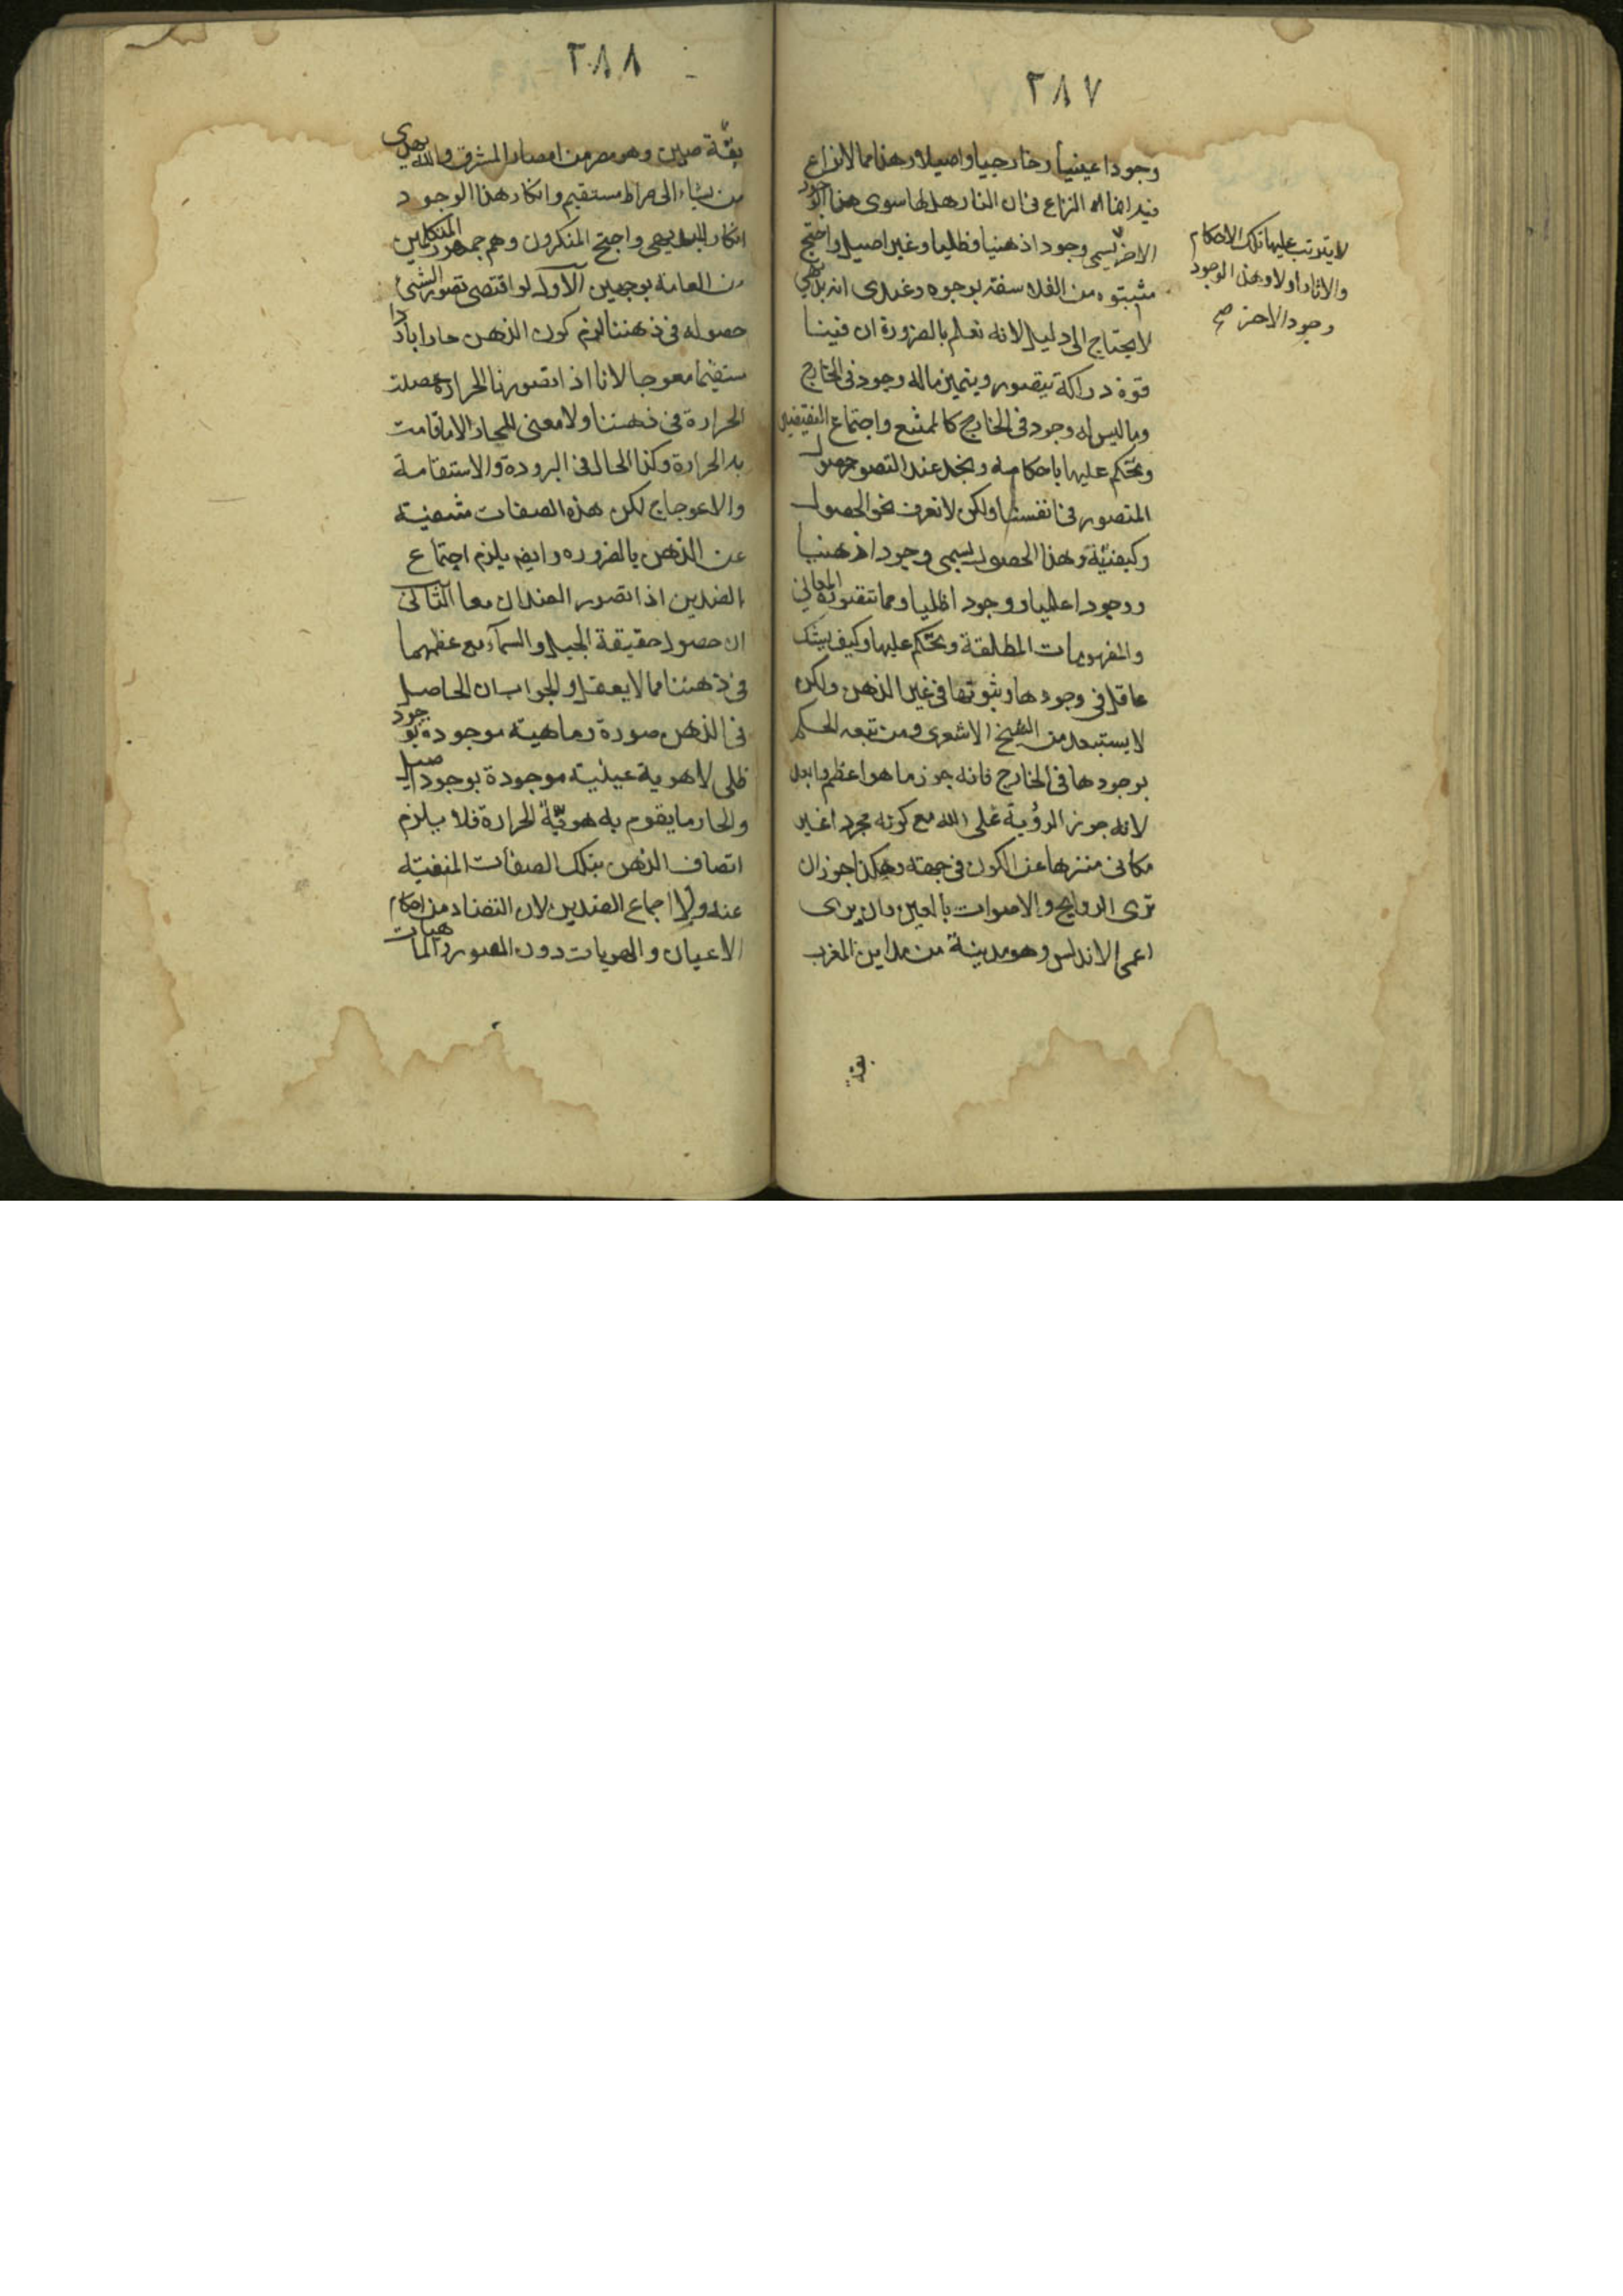 ٢٨٧
وجودا عينيا وخارجيا واصيلا وهذا مما لا نزاع
فيه انما النزاع فى ان النار هل لها سوى هذا الوجود
الاخر يسمى وجودا ذهنيا وظليا وغير اصيل واحتج
مثبتوه من الفلاسفة بوجوه وعندى انه بديهي
لا يحتاج الى دليل لانه نعلم بالضرورة ان فينا
قوة دراكة تتصور ويتميز ماله وجود فى الخارج
وما ليس له وجود فى الخارج كالممتنع واجتماع النقيضين
وتحكم عليها باحكام ونجد عند التصور حصول
المتصور فى انفسنا ولكن لا نعرف نحو الحصول
وكيفيته وهذا الحصول يسمى وجودا ذهنيا
ووجودا علميا ووجودا ظليا ومما نتصوره المعاني
والمفهومات المطلقة ونحكم عليها وكيف يشك
عاقل فى وجودها وثبوتها فى غير الذهن ولكن
لا يستبعد من الشيخ الاشعرى ومن تبعه الحكم
بوجودها فى الخارج فانه جوز ما هو اعظم وابعد
لانه جوز الرؤية على الله مع كونه مجردا غير
مكانى منزها عن الكون فى جهة وهكذا جوز ان
ترى الروايح والاصوات بالعين وان يرى
اعمى الاندلس وهو مدينة من مداين المغرب
بقة
لا يترتب عليها تلك الاحكام
والاثار اولا وهذا الوجود
وجود الاخر صح
٢٨٨
بقة صين وهو مصر من امصار المشرق والله يهدى
من يشاء الى صراط مستقيم وانكار هذا الوجود
انكار للبديهى واحتج المنكرون وهم جمهور المتكلمين
من العامة بوجهين الاول لو اقتضى تصور الشئ
حصوله فى ذهننا لزم كون الذهن حارا باردا
مستقيما معوجا لانا اذا تصورنا الحرارة حصلت
الحرارة فى ذهننا ولا معنى للحار الا ما قامت
به الحرارة وكذا الحال فى البرودة والاستقامة
والاعوجاج لكن هذه الصفات منفية
عن الذهن بالضرورة وايضا يلزم اجتماع
الضدين اذا تصور الضدان معا الثانى
ان حصول حقيقة الجبل والسماء مع عظمهما
فى ذهننا مما لا يعقل والجواب ان الحاصل
فى الذهن صورة وماهية موجودة بوجود
ظلى لا هوية عينية موجودة بوجود اصيل
والحار ما يقوم به هوية الحرارة فلا يلزم
اتصاف الذهن بتلك الصفات المنفية
عنه ولا اجماع الضدين لان التضاد من احكام
الاعيان والهويات دون الصور والماهيات